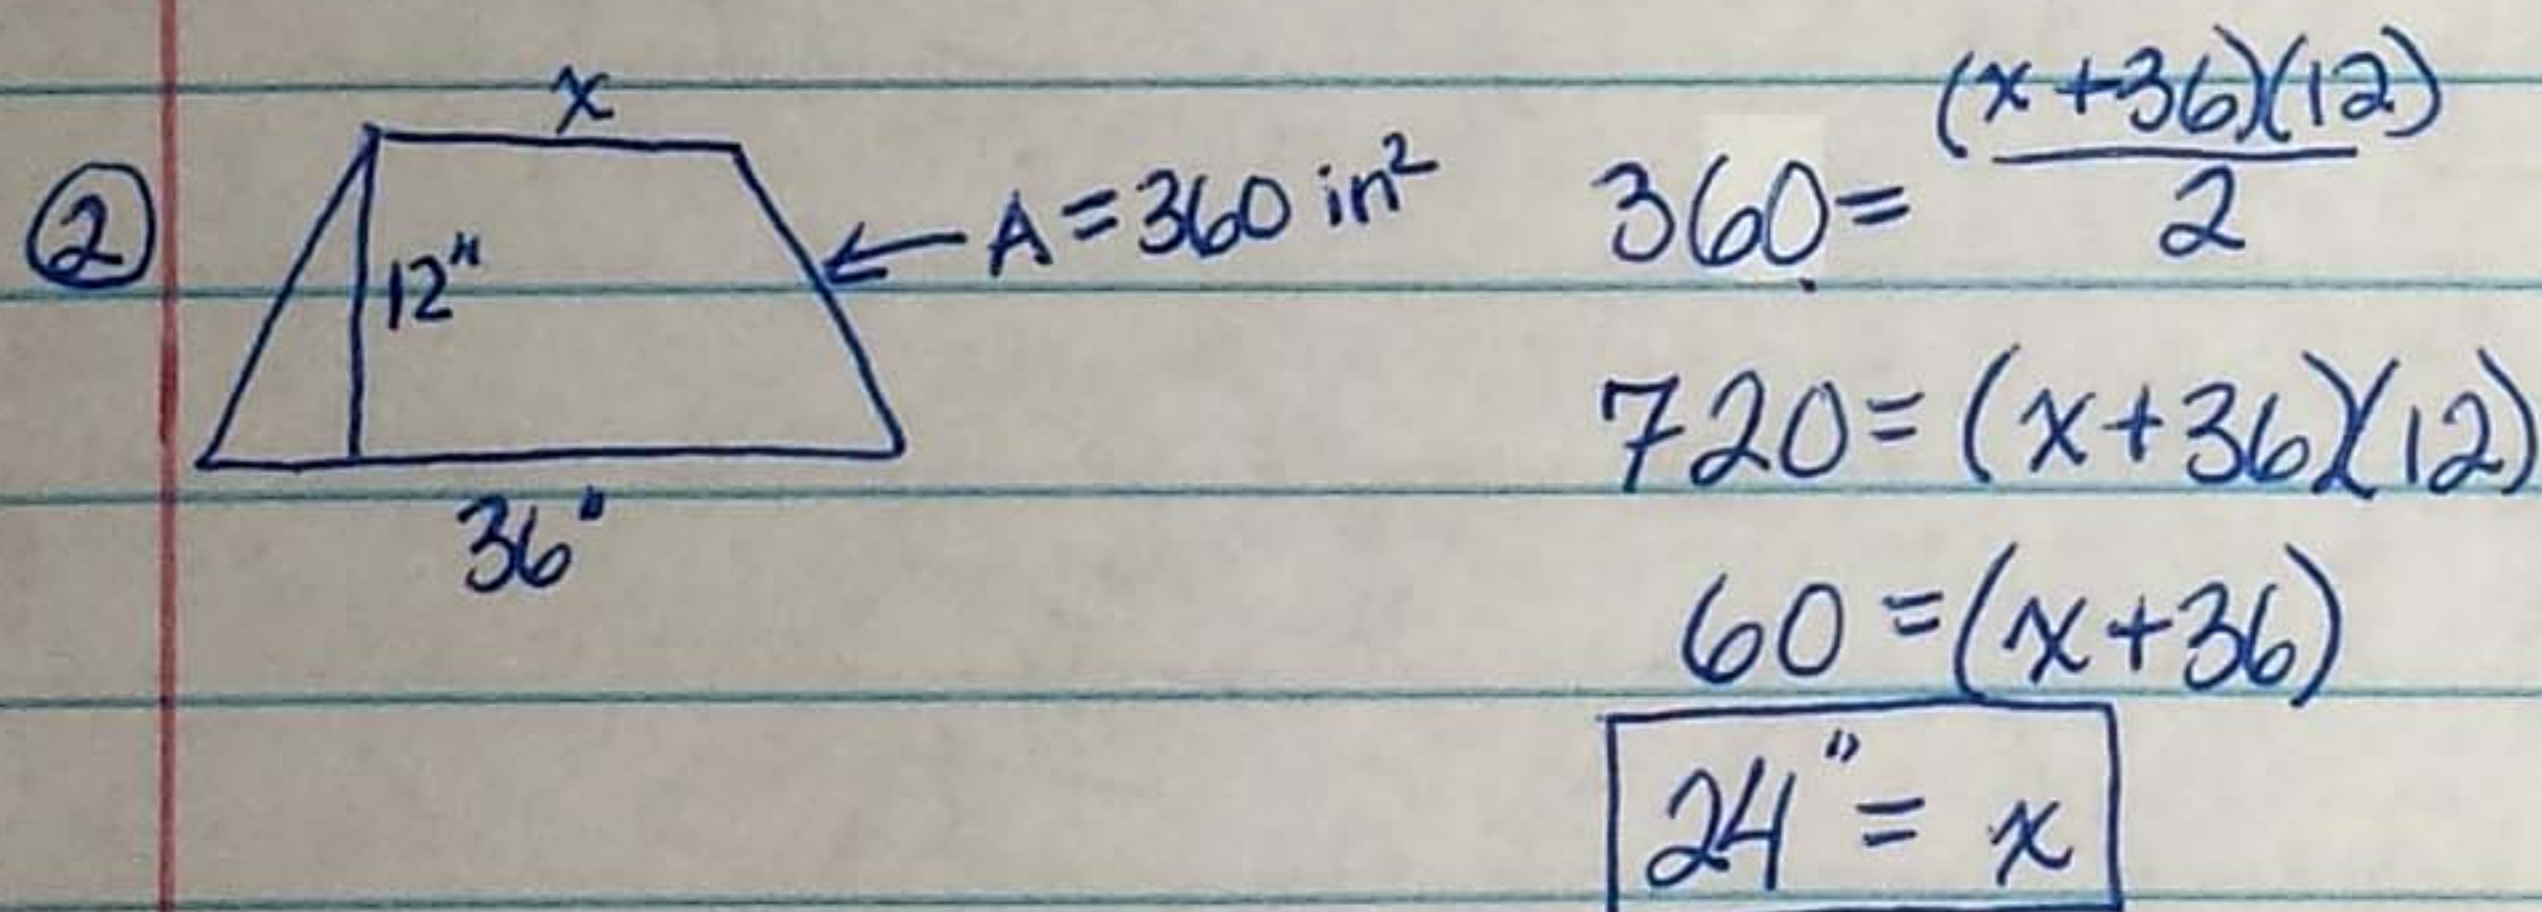 ②
x
12"
36"
← A = 360 in²
360 = (x + 36)(12) / 2
720 = (x + 36)(12)
60 = (x + 36)
24" = x